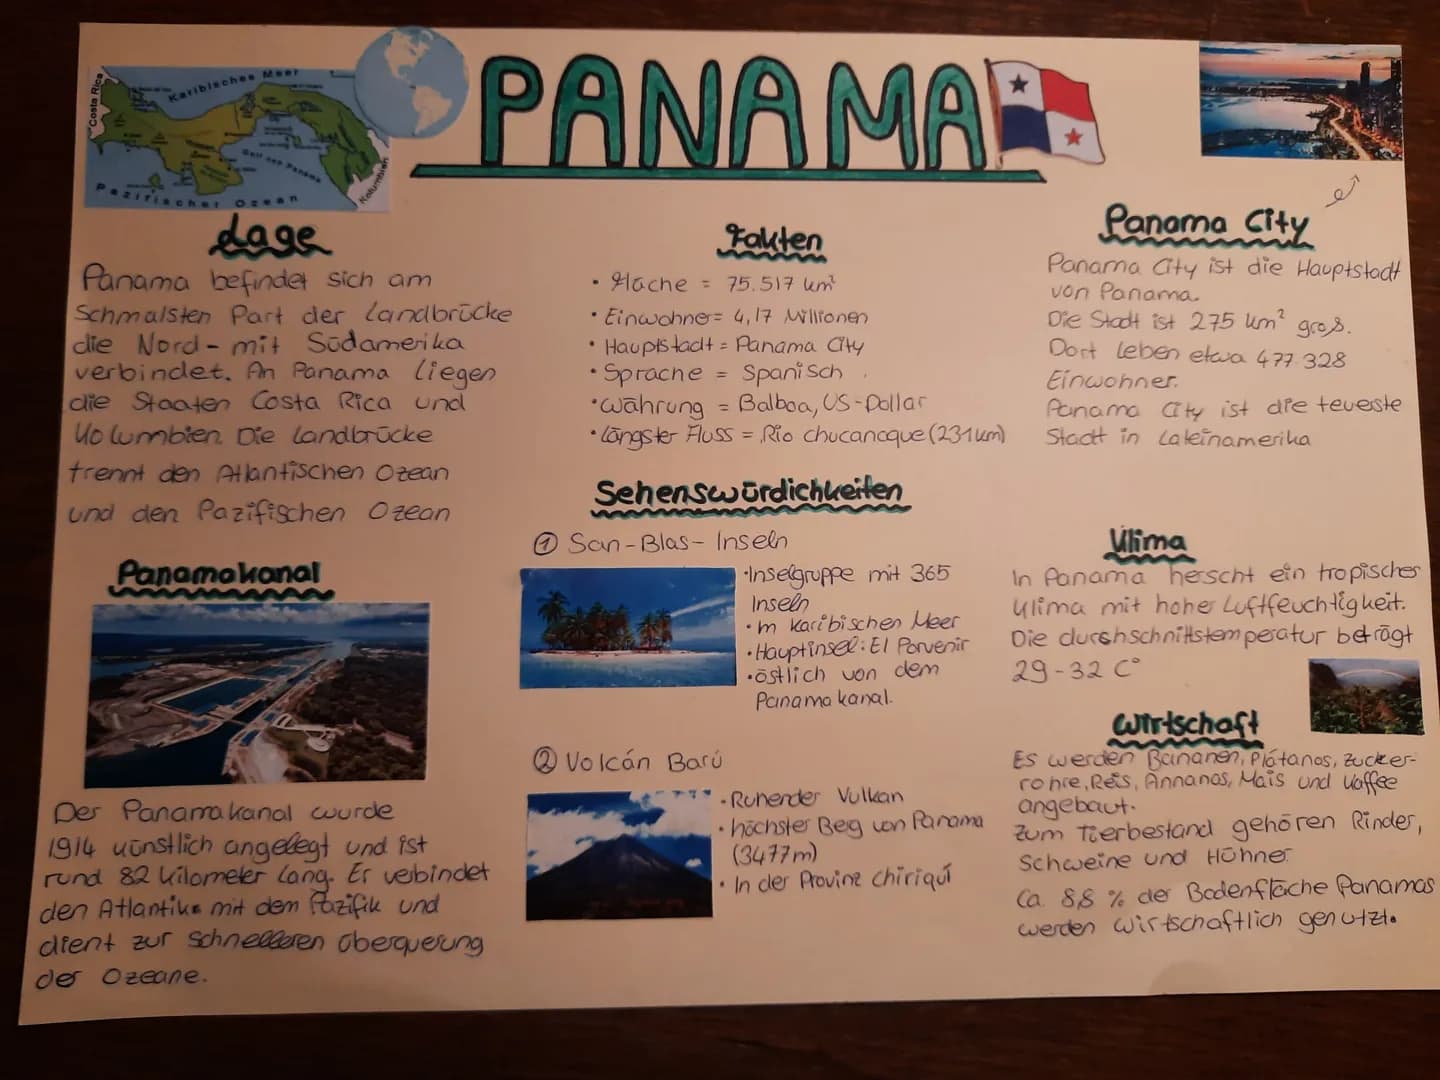 PANAMA
Costa Rica
Karibisches Meer
Golf von Panama
Pazifischer Ozean
Kolumbien
Lage
Panama befindet sich am
Schmalsten Part der Landbrücke
die Nord- mit Südamerika
verbindet. An Panama liegen
die Staaten Costa Rica und
Kolumbien. Die Landbrücke
trennt den Atlantischen Ozean
und den Pazifischen Ozean
Panamakanal
Der Panamakanal wurde
1914 künstlich angelegt und ist
rund 82 Kilometer lang. Er verbindet
den Atlantik mit dem Pazifik und
dient zur schnelleren überquerung
der Ozeane.
Fakten
• Fläche = 75.517 km²
• Einwohner= 4,17 Millionen
• Hauptstadt = Panama City
• Sprache = Spanisch
• Währung = Balboa, US-Dollar
• längster Fluss = Rio chucanaque (231km)
Sehenswürdichkeiten
① San-Blas-Inseln
• Inselgruppe mit 365
Inseln
• im karibischen Meer
• Hauptinsel: El Porvenir
• östlich von dem
Panamakanal.
② Volcán Barú
• Ruhender Vulkan
• höchster Berg von Panama
(3477m)
• In der Provinz Chiriquí
Panama City
Panama City ist die Hauptstadt
von Panama.
Die Stadt ist 275 km² groß.
Dort leben etwa 477.328
Einwohner.
Panama City ist die teuerste
Stadt in Lateinamerika
Klima
In Panama herscht ein tropisches
Klima mit hoher Luftfeuchtigkeit.
Die durchschnittstemperatur beträgt
29-32 C°
Wirtschaft
Es werden Bananen, Plátanos, Zucker-
rohre, Reis, Annanas, Mais und Kaffee
angebaut.
Zum Tierbestand gehören Rinder,
Schweine und Hühner.
Ca. 8,8 % der Bodenfläche Panamas
werden wirtschaftlich genutzt.